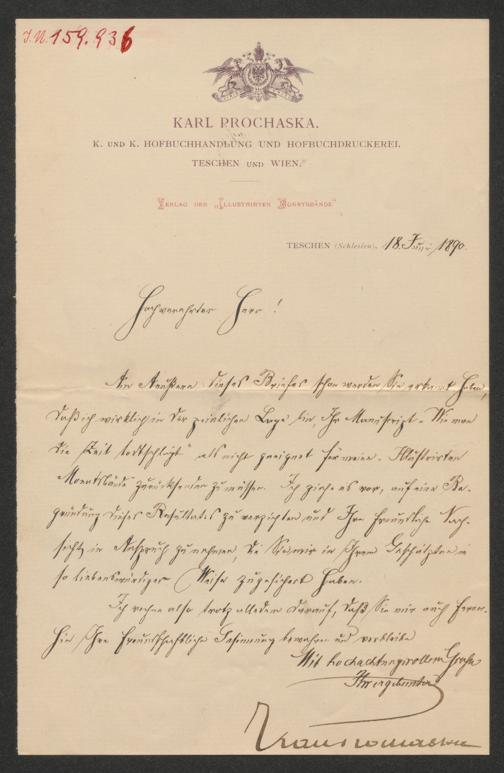 J.N. 159.936
KARL PROCHASKA.
K. UND K. HOFBUCHHANDLUNG UND HOFBUCHDRUCKEREI.
TESCHEN UND WIEN.
VERLAG DER „ILLUSTRIRTEN MONATSBÄNDE"
TESCHEN (Schlesien), 18. Juni 1890.
Hochverehrter Herr!
Am Aeußern dieses Briefes schon werden Sie erkannt haben,
daß ich wirklich in der peinlichen Lage bin, Ihr Manuscript „Wie man
die Zeit todtschlägt" als nicht geeignet für meine „Illustrirten
Monatsbände" zurücksenden zu müssen. Ich ziehe es vor, auf eine Be-
gründung dieses Resultates zu verzichten und Ihre freundliche Nach-
sicht in Anspruch zu nehmen, die Sie mir in Ihrem Geschätzten in
so liebenswürdiger Weise zugesichert haben.
Ich rechne also trotz alledem darauf, daß Sie mir auch fernern-
hin Ihre freundschaftliche Gesinnung bewahren und verbleibe
Mit hochachtungsvollem Gruße
Ihr ergebenster
Karl Prochaska